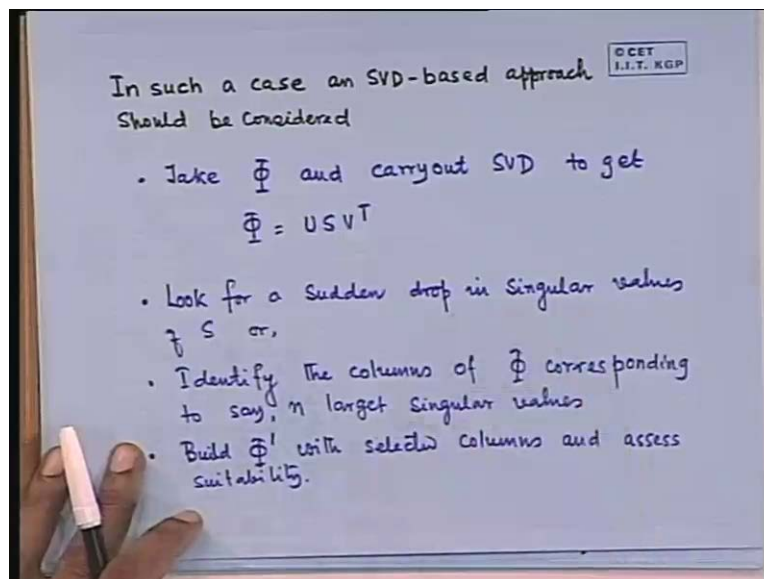 In such a case an SVD-based approach
© CET
I.I.T. KGP
Should be considered
• Take Φ and carryout SVD to get
Φ = USVᵀ
• Look for a sudden drop in singular values
of S or,
• Identify the columns of Φ corresponding
to say, n larget singular values
• Build Φ' with selected columns and assess
suitability.